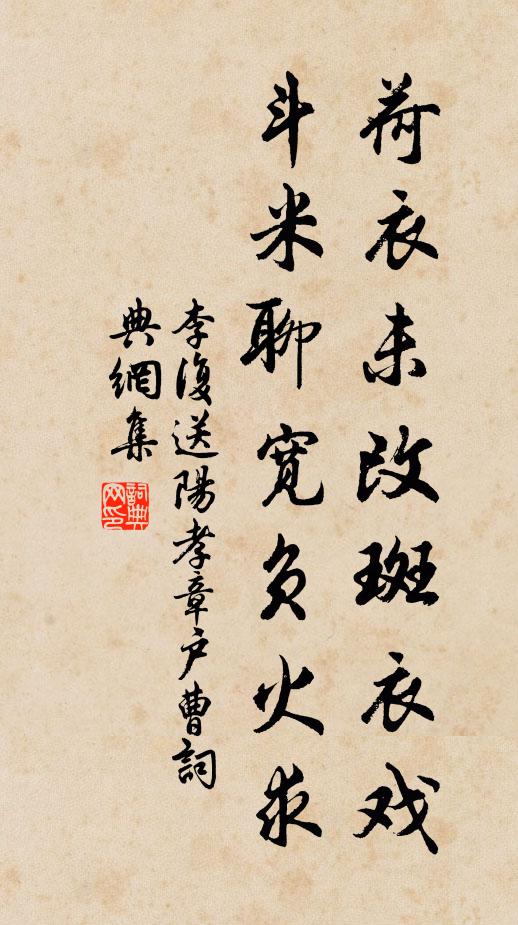 荷衣未改斑衣戏
斗米聊宽负火求
李復送陽孝章户曹詞
典網集
詞典
网印